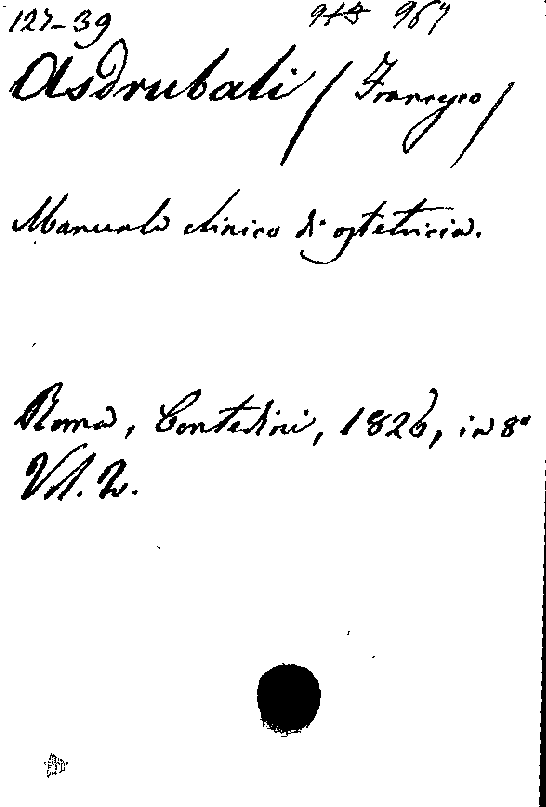 127-39 967
Asdrubali / Francesco /
Manuale clinico di ostetricia.
Roma, Contedini, 1826, in 8°
Vol. 2.